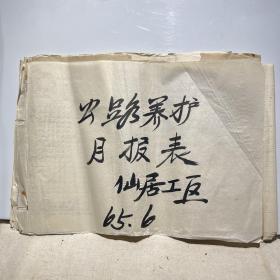 公路养护
月报表
仙居工区
65.6